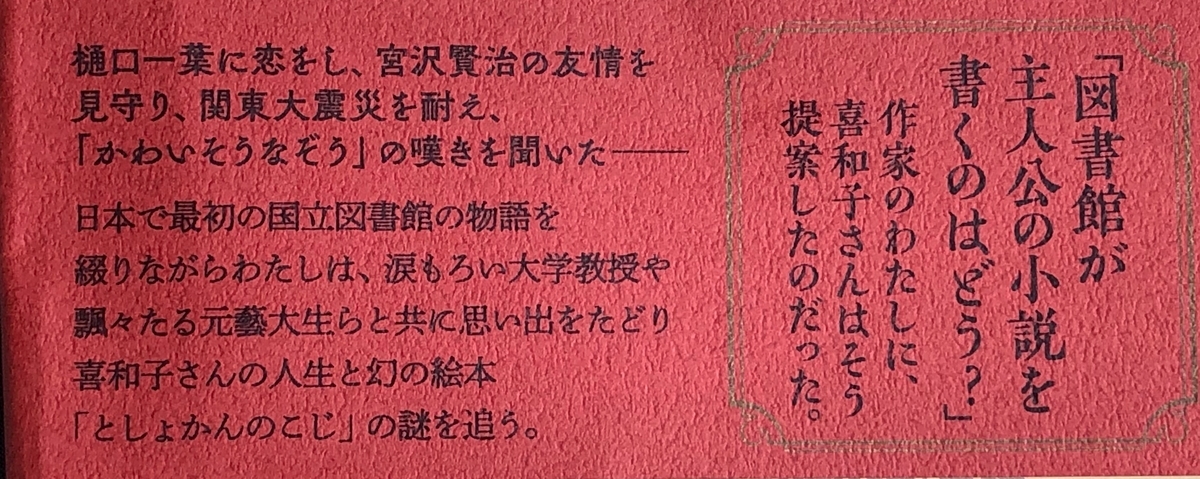 「図書館が
主人公の小説を
書くのはどう？」
作家のわたしに、
喜和子さんはそう
提案したのだった。
樋口一葉に恋をし、宮沢賢治の友情を
見守り、関東大震災を耐え、
「かわいそうなぞう」の嘆きを聞いた――
日本で最初の国立図書館の物語を
綴りながらわたしは、涙もろい大学教授や
飄々たる元藝大生らと共に思い出をたどり
喜和子さんの人生と幻の絵本
「としょかんのこじ」の謎を追う。